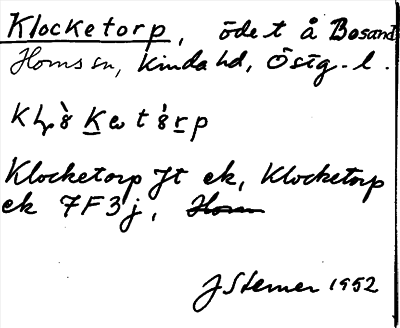 Klocketorp, ödet å Bosand
Horns sn, Kinda hd, Östg. l.
Klocketorp Jt ek, Klocketorp
ek 7F3j, Horn
J Sterner 1952